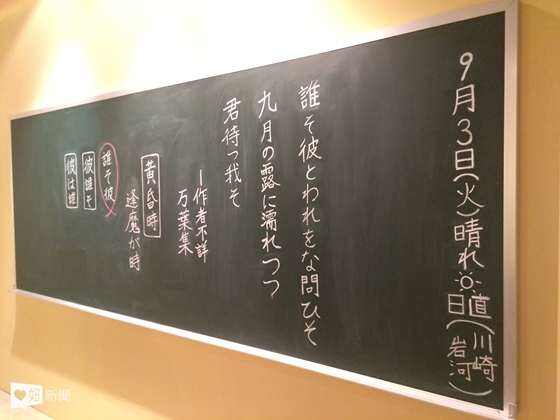 9月3日(火)晴れ
日直(川崎 岩河)
誰そ彼とわれをな問ひそ
九月の露に濡れつつ
君待つ我そ
ー作者不詳
万葉集
黄昏時
逢魔が時
誰そ彼
彼誰そ
彼は誰
妞新聞